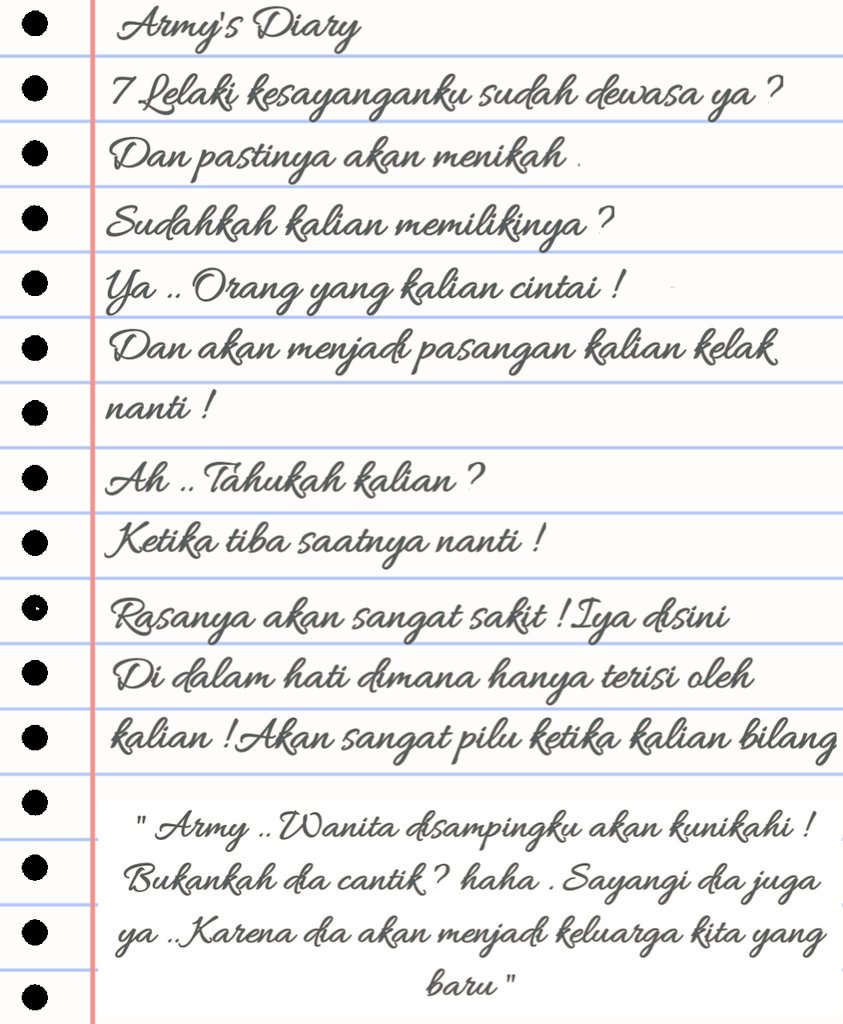 Army's Diary
7 Lelaki kesayanganku sudah dewasa ya ?
Dan pastinya akan menikah .
Sudahkah kalian memilikinya ?
Ya .. Orang yang kalian cintai !
Dan akan menjadi pasangan kalian kelak
nanti !
Ah .. Tahukah kalian ?
Ketika tiba saatnya nanti !
Rasanya akan sangat sakit ! Iya disini
Di dalam hati dimana hanya terisi oleh
kalian ! Akan sangat pilu ketika kalian bilang
" Army .. Wanita disampingku akan kunikahi !
Bukankah dia cantik ? haha . Sayangi dia juga
ya .. Karena dia akan menjadi keluarga kita yang
baru "